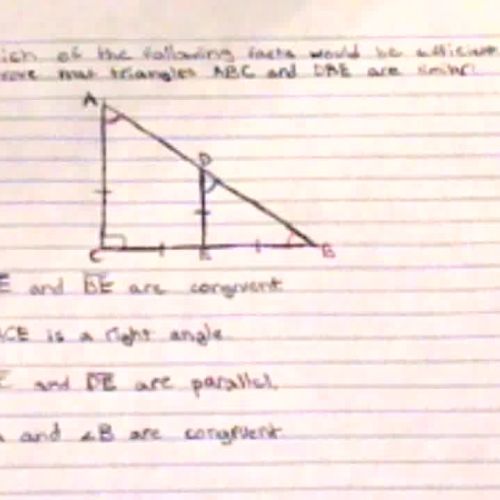 of the following facts would be
that triangles ABC and DBE are similar
A
D
C
E
B
and BE are congruent
is a right angle.
and DE are parallel.
and ∠B are congruent